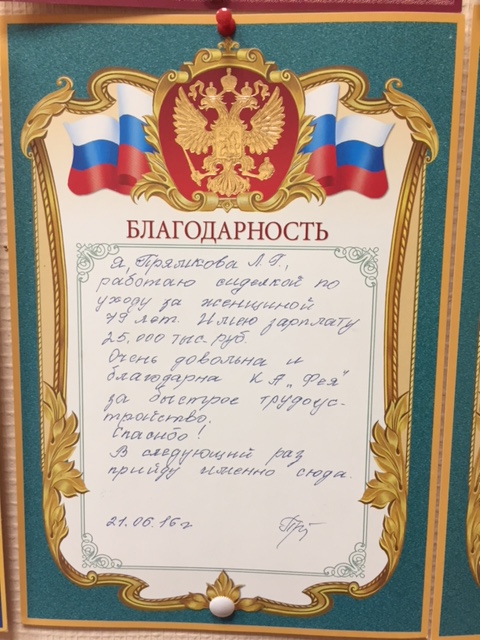 БЛАГОДАРНОСТЬ
Я, Прямкова Л.Г.,
работаю сиделкой по
уходу за женщиной
79 лет. Имею зарплату
25,000 тыс. руб.
Очень довольна и
благодарна К А „Фея"
за быстрое трудоус-
тройство.
Спасибо!
В следующий раз
прийду именно сюда.
21.06.16г